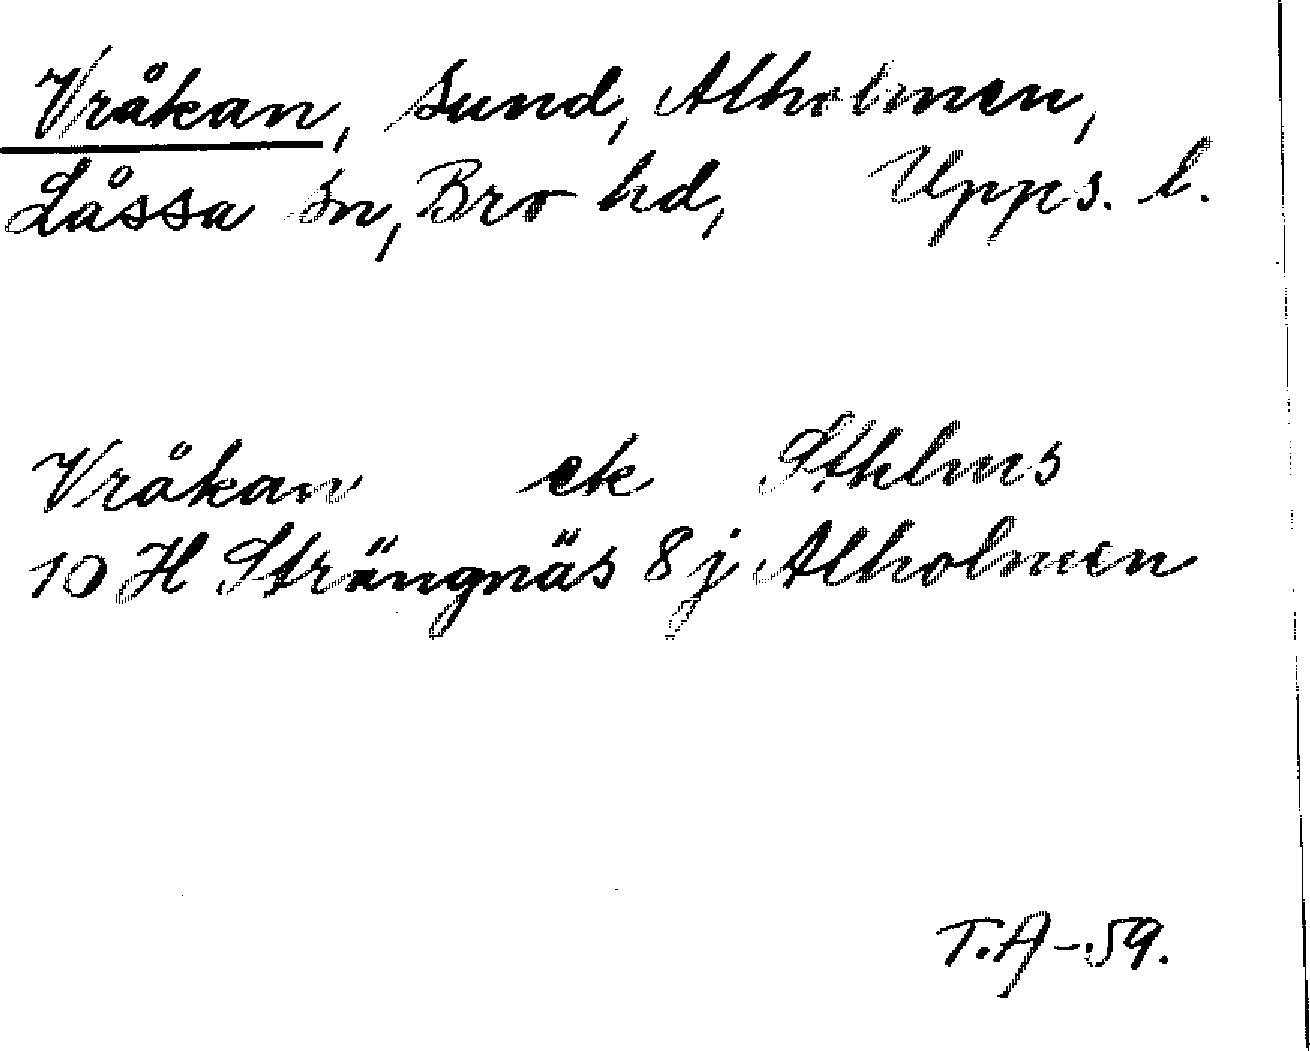 Vråkan, sund, Alholmen,
Låssa sn, Bro hd, Upps. l.
Vråkan ek Sthlms
10 H Strängnäs 8j Alholmen
T.A-59.